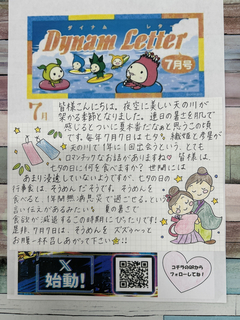 ダイナム レター
Dynam Letter
7月号
7月
皆様こんにちは。夜空に美しい天の川が
架かる季節となりました。連日の暑さを肌で
感じるとついに夏本番だなぁと思うこの頃
です。毎年7月7日は七夕。織姫と彦星が
天の川で1年に1回出会うという、とても
ロマンチックなお話がありますね。皆様は
"七夕の日に何を食べますか?世間には
あまり浸透していないようですが、七夕の日の
行事食は、そうめんだそうです。そうめんを
食べると、1年間無病息災で過ごせる、という
言い伝えがあるみたいな。夏の暑さで
食欲が減退するこの時期にぴったりです!
是非、7月7日は、そうめんを ズズ〜〜っと
お腹一杯召しあがって下さい
X
始動!
コチラのQRから
フォローしてね!